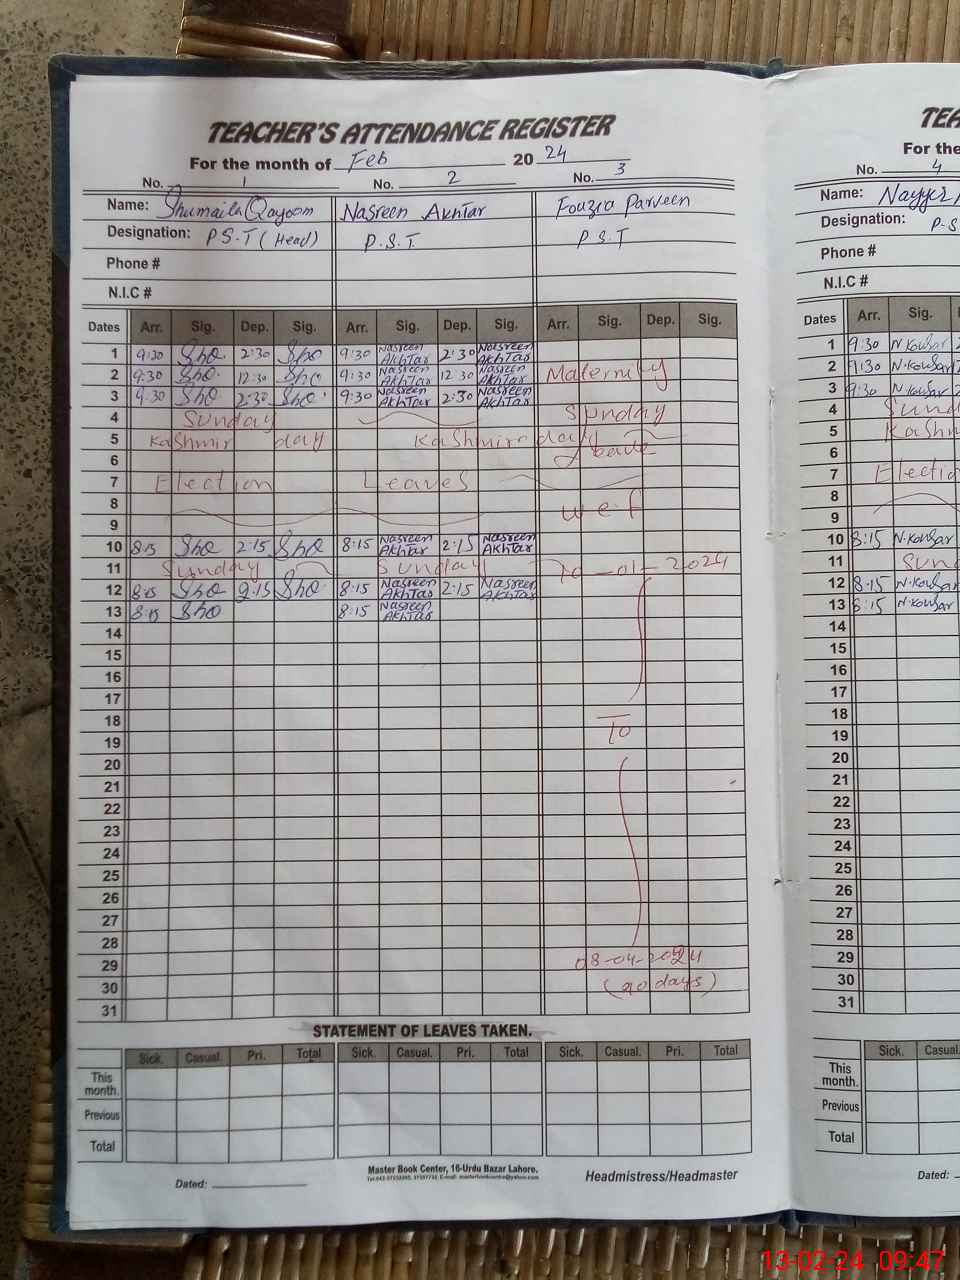 TEACHER'S ATTENDANCE REGISTER
For the month of Feb 2024
No. 1 No. 2 No. 3
Name: Shumaila Qayoom Nasreen Akhtar Fouzia Parveen
Designation: P.S.T (Head) P.S.T P.S.T
Phone #
N.I.C #
Dates Arr. Sig. Dep. Sig. Arr. Sig. Dep. Sig. Arr. Sig. Dep. Sig.
1 9:30 ShQ 2:30 ShQ 9:30 Nasreen Akhtar 2:30 Nasreen Akhtar
2 9:30 ShQ 12:30 ShQ 9:30 Nasreen Akhtar 12:30 Nasreen Akhtar Maternity
3 9:30 ShQ 2:30 ShQ 9:30 Nasreen Akhtar 2:30 Nasreen Akhtar
4 Sunday Sunday
5 Kashmir day Kashmir day
6
7 Election Leaves
8 w.e.f
9
10 8:15 ShQ 2:15 ShQ 8:15 Nasreen Akhtar 2:15 Nasreen Akhtar
11 Sunday Sunday 10-01-2024
12 8:15 ShQ 2:15 ShQ 8:15 Nasreen Akhtar 2:15 Nasreen Akhtar
13 8:15 ShQ 8:15 Nasreen Akhtar
14
15
16
17
18 To
19
20
21
22
23
24
25
26
27
28
29 08-04-2024
30 (90 days)
31
STATEMENT OF LEAVES TAKEN.
Sick. Casual. Pri. Total Sick. Casual. Pri. Total Sick. Casual. Pri. Total
This month.
Previous
Total
Dated:
Master Book Center, 16-Urdu Bazar Lahore.
Headmistress/Headmaster
TEA
For the
No. 4
Name: Nayyer
Designation: P.S
Phone #
N.I.C #
Dates Arr. Sig.
1 9:30 N.Kousar
2 9:30 N.Kousar
3 9:30 N.Kousar
4 Sund
5 Kashm
6
7 Electio
8
9
10 8:15 N.Kousar
11 Sund
12 8:15 N.Kousar
13 8:15 N.Kousar
14
15
16
17
18
19
20
21
22
23
24
25
26
27
28
29
30
31
Sick. Casual
This month.
Previous
Total
Dated:
13-02-24 09:47